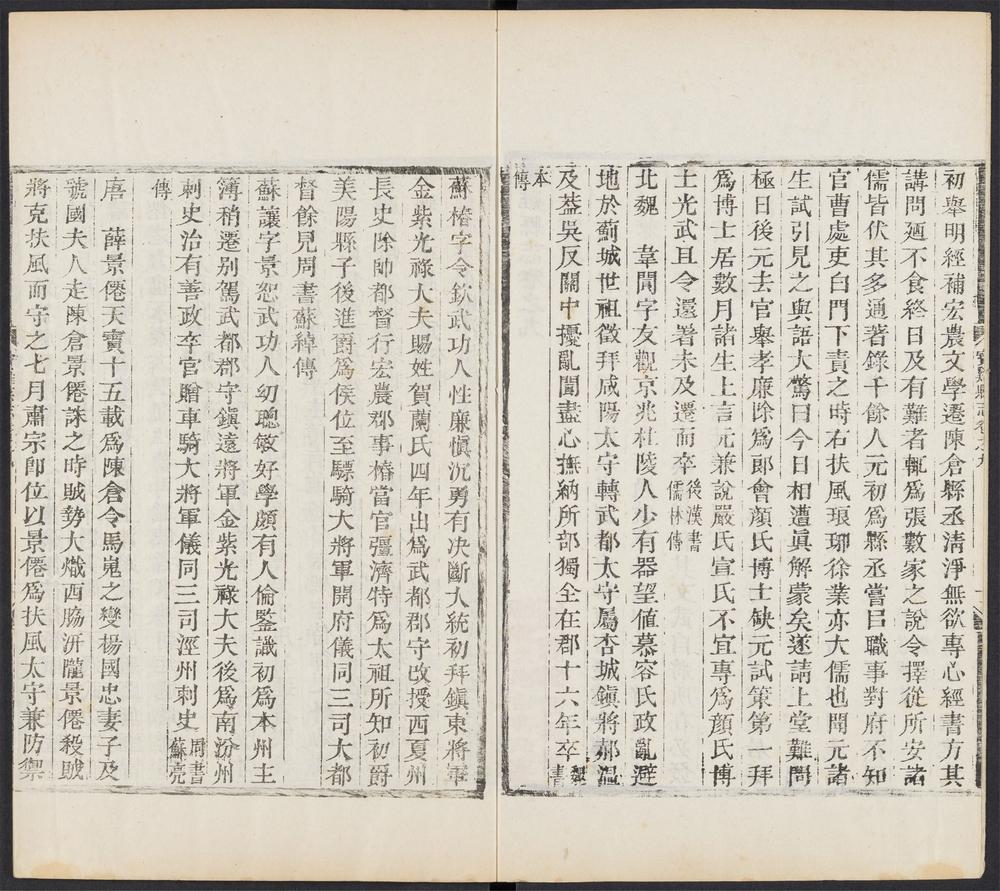 初舉明經補宏農文學遷陳倉縣丞清淨無欲專心經書方其
講問廼不食終日及有難者輒爲張數家之說令擇從所安諸
儒皆伏其多通著錄千餘人元初爲縣丞嘗㠯職事對府不知
官曹處吏白門下責之時右扶風琅琊徐業亦大儒也聞元諸
生試引見之與語大驚曰今日相遭眞解蒙矣遂請上堂難問
極日後元去官舉孝廉除爲郞會顏氏博士缺元試策第一拜
爲博士居數月諸生上言元兼說嚴氏宣氏不宜專爲顏氏博
士光武且令還署未及遷而卒後漢書儒林傳
北魏　韋閬字友觀京兆杜陵人少有器望値慕容氏政亂避
地於薊城世祖徵拜咸陽太守轉武都太守屬杏城鎭將郝溫
及葢吳反關中擾亂閬盡心撫納所部獨全在郡十六年卒魏書
本傳
蘇椿字令欽武功人性廉愼沉勇有决斷大統初拜鎭東將軍
金紫光祿大夫賜姓賀蘭氏四年出爲武都郡守改授西夏州
長史除帥都督行宏農郡事椿當官彊濟特爲太祖所知初爵
美陽縣子後進爵爲侯位至驃騎大將軍開府儀同三司大都
督餘見周書蘇綽傳
蘇讓字景恕武功人幼聰敏好學頗有人倫鑒識初爲本州主
簿稍遷別駕武都郡守鎭遠將軍金紫光祿大夫後爲南汾州
刺史治有善政卒官贈車騎大將軍儀同三司涇州刺史周書蘇亮
傳
唐　薛景僊天寶十五載爲陳倉令馬嵬之變楊國忠妻子及
虢國夫人走陳倉景僊誅之時賊勢大熾西脇汧隴景僊殺賊
將克扶風而守之七月肅宗卽位以景僊爲扶風太守兼防禦